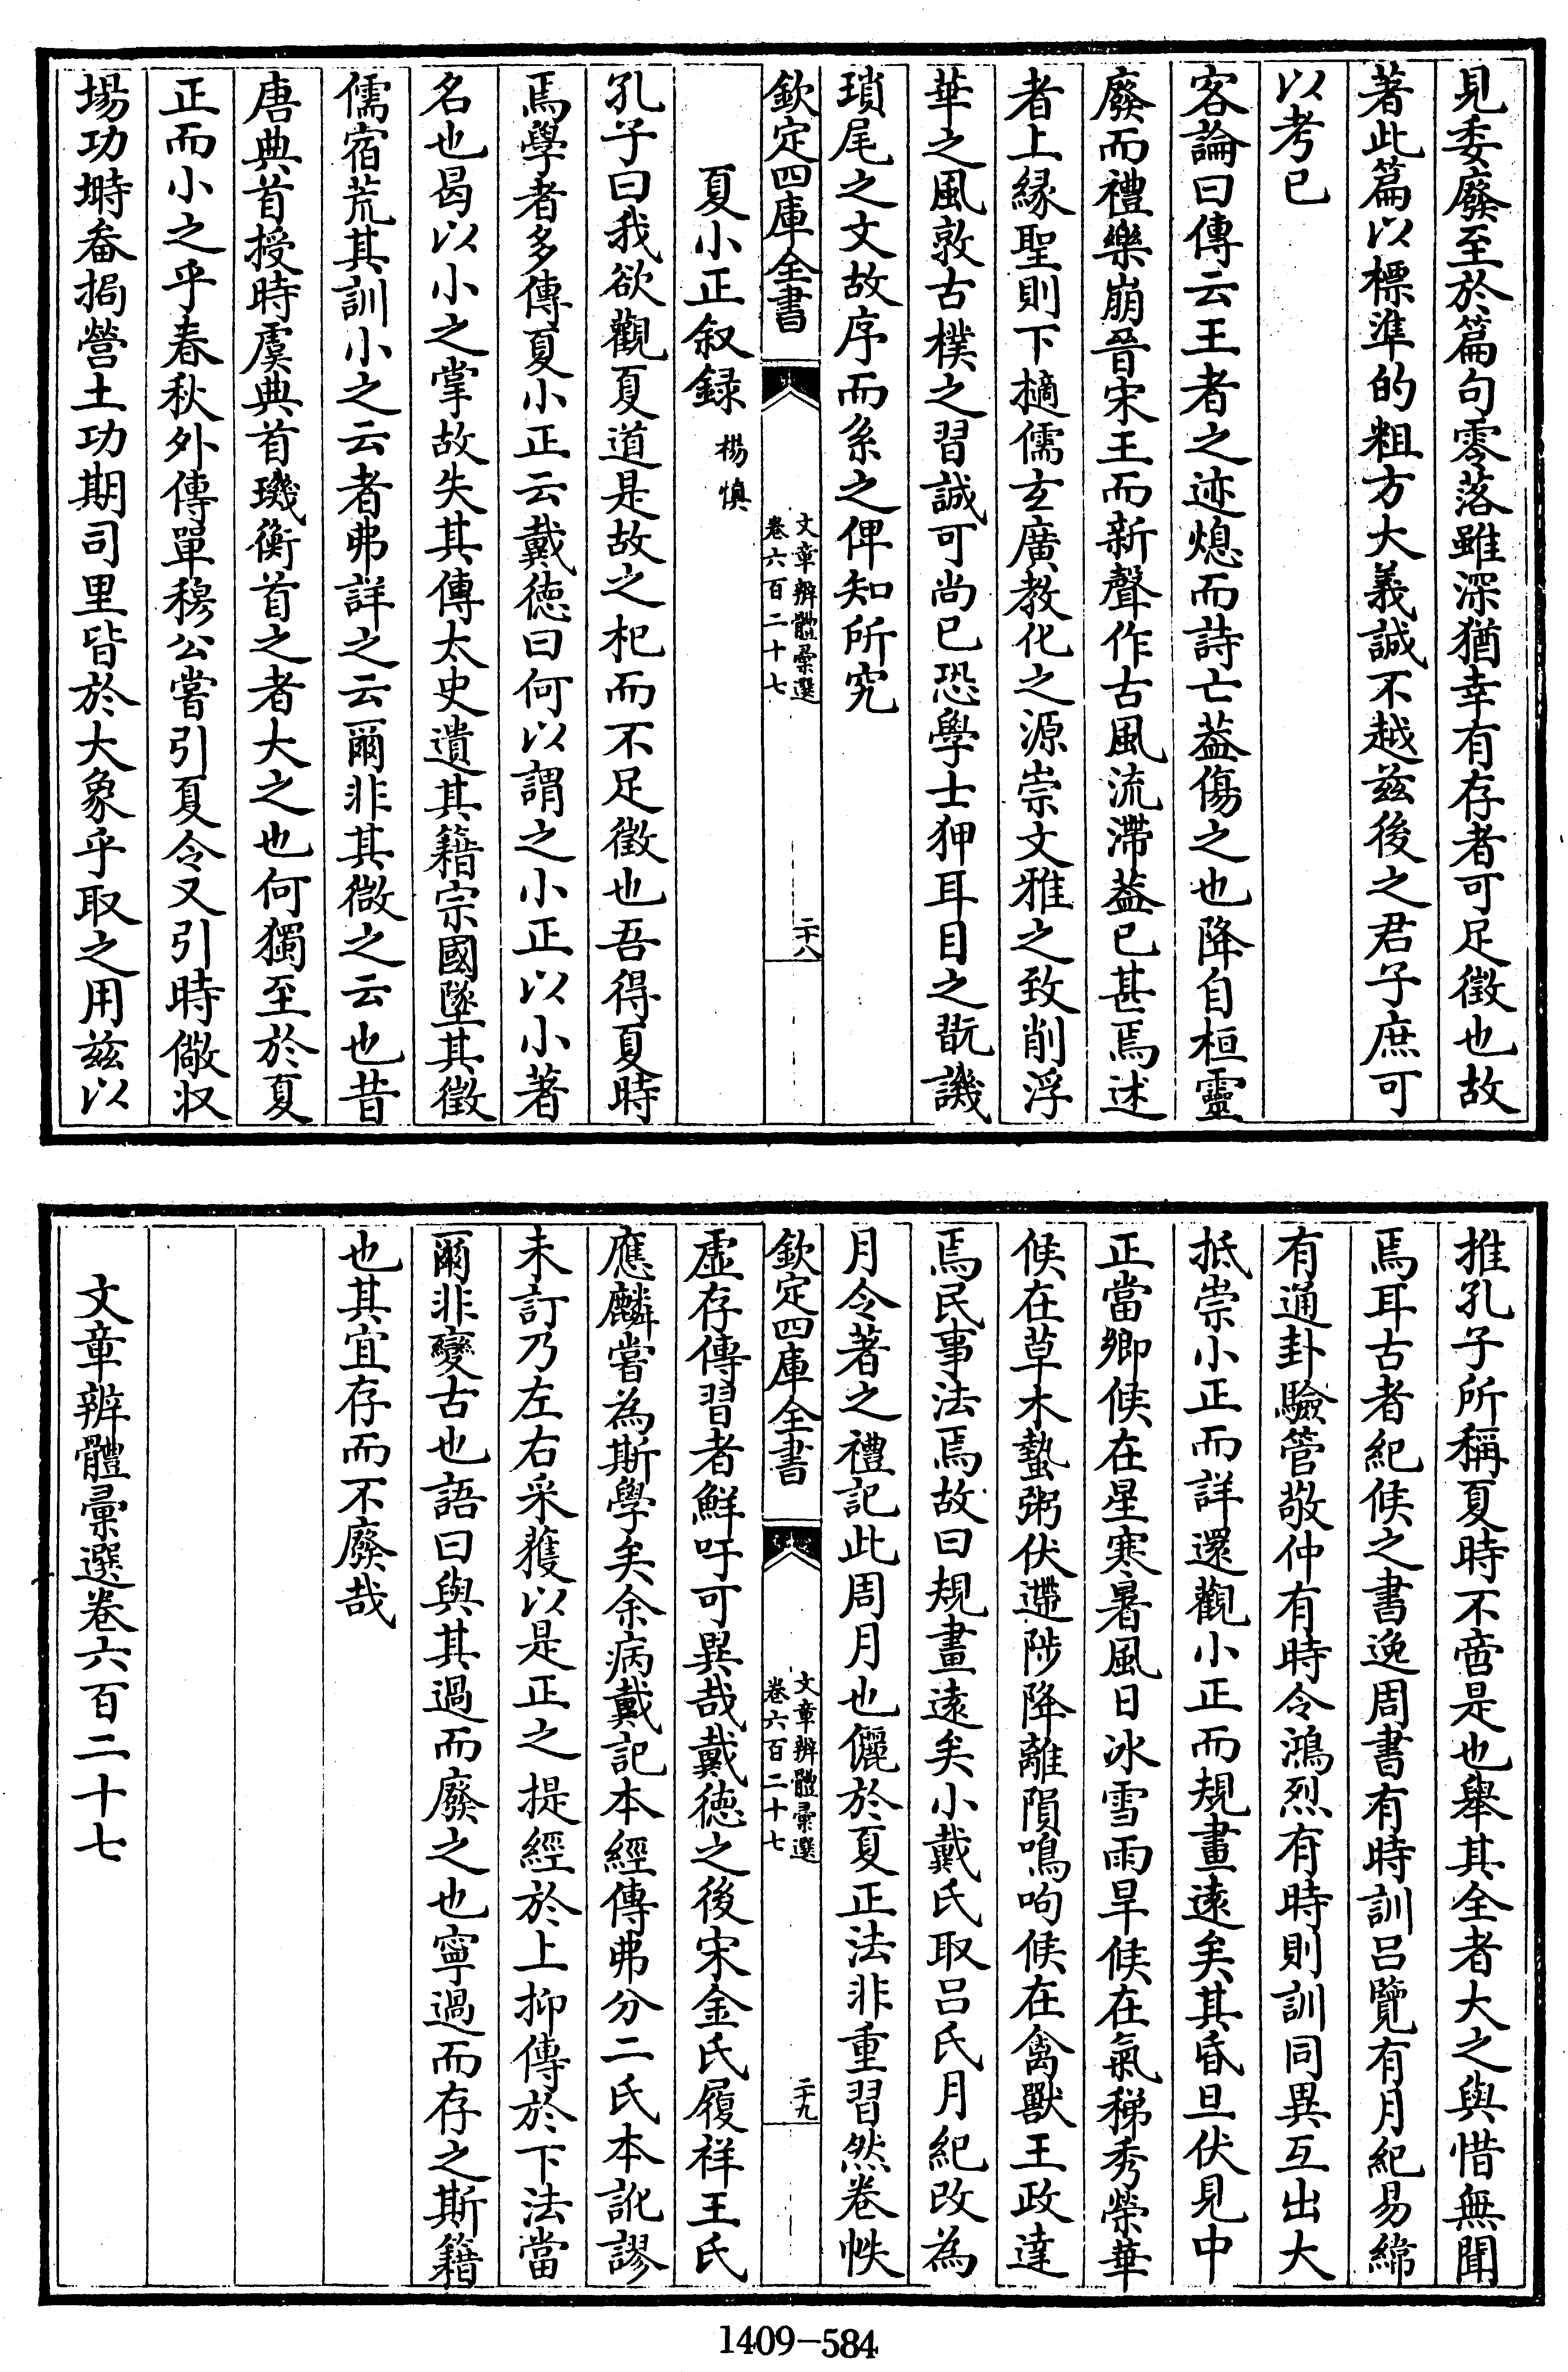 見委廢至於篇句零落雖深猶幸有存者可足徴也故
著此篇以標準的粗方大義誠不越兹後之君子庶可
以考已
客論曰傳云王者之迹熄而詩亡葢傷之也降自桓靈
廢而禮樂崩晉宋王而新聲作古風流滯葢已甚焉述
者上緣聖則下擿儒玄廣教化之源崇文雅之致削浮
華之風敦古樸之習誠可尚已恐學士狎耳目之翫譏
瑣尾之文故序而系之俾知所究
欽定四庫全書
文章辨體彚選
卷六百二十七
二十八
夏小正叙録 楊慎
孔子曰我欲觀夏道是故之杞而不足徴也吾得夏時
焉學者多傳夏小正云戴德曰何以謂之小正以小著
名也曷以小之掌故失其傳太史遺其籍宗國墜其徵
儒宿荒其訓小之云者弗詳之云爾非其微之云也昔
唐典首授時虞典首璣衡首之者大之也何獨至於夏
正而小之乎春秋外傳單穆公嘗引夏令又引時儆収
場功塒畚挶營土功期司里皆於大象乎取之用兹以
推孔子所稱夏時不啻是也舉其全者大之與惜無聞
焉耳古者紀候之書逸周書有時訓吕覽有月紀易緯
有通卦驗管敬仲有時令鴻烈有時則訓同異互出大
抵崇小正而詳還觀小正而規畫遠矣其昏旦伏見中
正當鄉候在星寒暑風日冰雪雨旱候在氣稊秀榮華
候在草木蟄粥伏遰陟降離隕鳴呴候在禽獸王政達
焉民事法焉故曰規畫遠矣小戴氏取吕氏月紀改為
月令著之禮記此周月也儷於夏正法非重習然卷帙
欽定四庫全書
文章辨體彚選
卷六百二十七
二十九
虚存傳習者鮮吁可異哉戴德之後宋金氏履祥王氏
應麟嘗為斯學矣余病戴記本經傳弗分二氏本訛謬
未訂乃左右采獲以是正之提經於上抑傳於下法當
爾非變古也語曰與其過而廢之也寧過而存之斯籍
也其宜存而不廢哉
文章辨體彚選卷六百二十七
1409-584